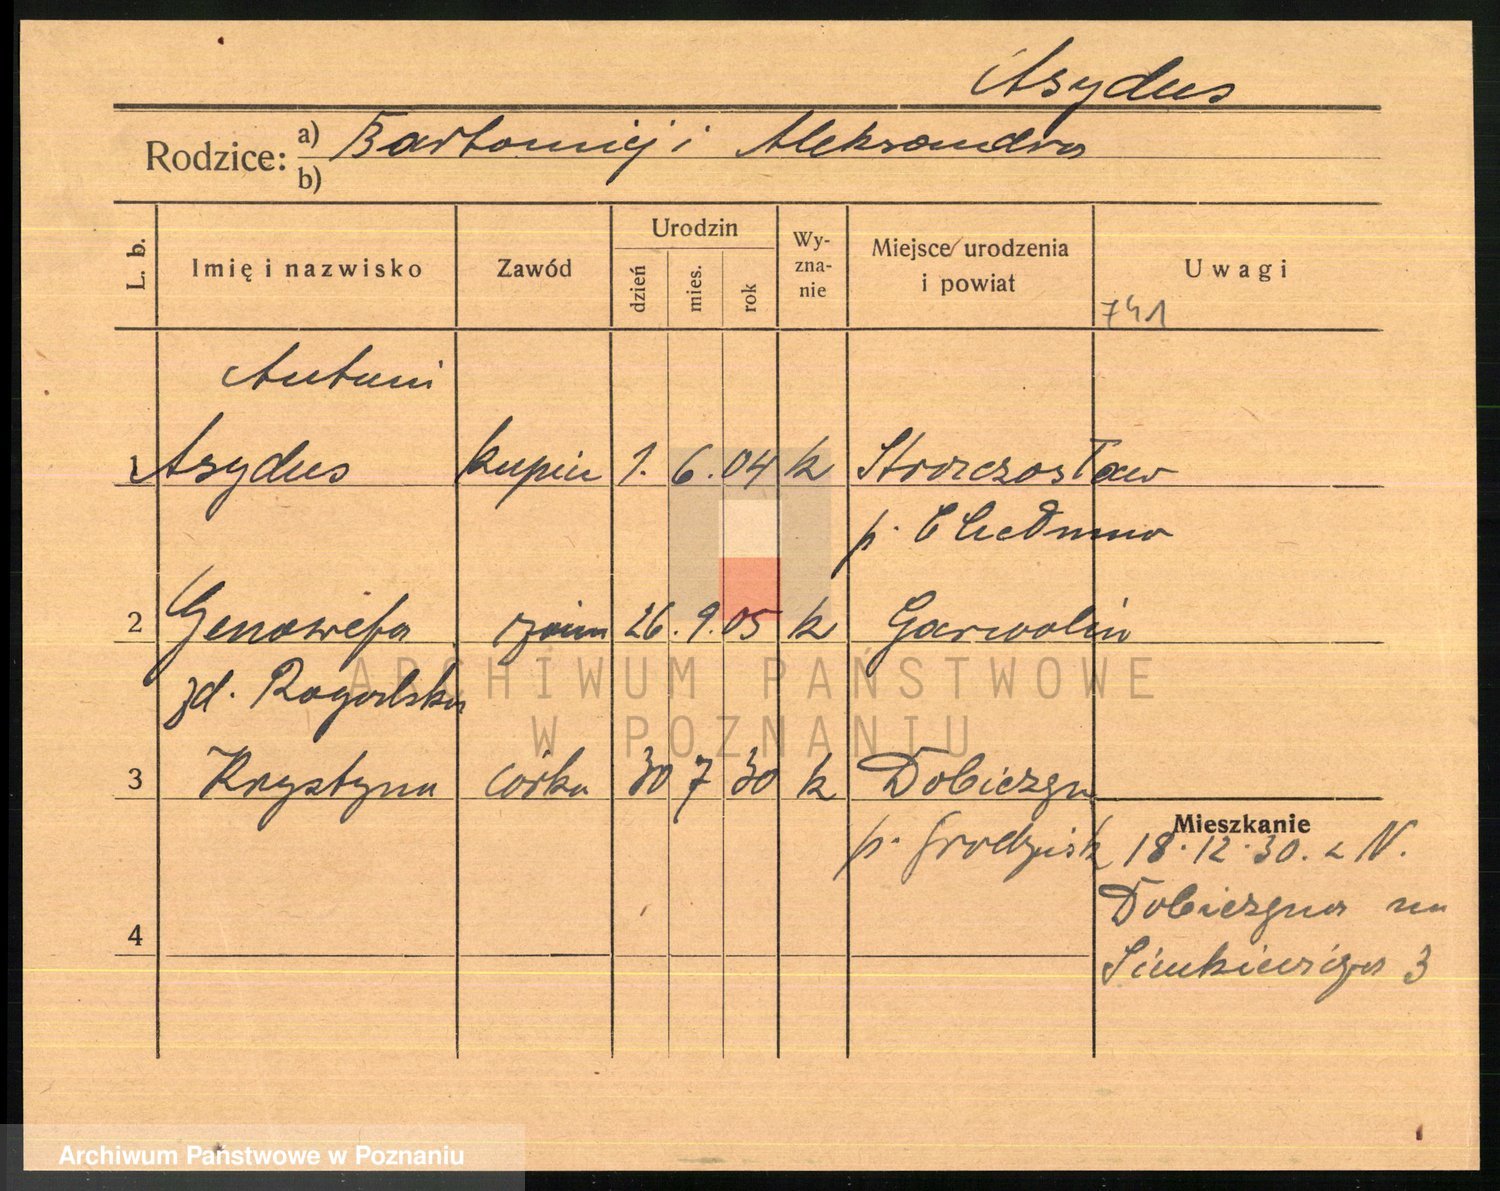 Asydus
Rodzice: a) Bartomiej i Aleksandra
b)
L. b. Imię i nazwisko Zawód Urodzin dzień mies. rok Wyznanie Miejsce urodzenia i powiat Uwagi
741
Antoni
1 Asydus kupiec 1. 6. 04 k
p. Chełmno
2 Genowefa żona 26. 9. 05 k Garwolin
zd. Rogalska
3 Krystyna córka 30 7 30 k Dobiezyn
p. Grodzisk
Mieszkanie
18.12.30. z N.
Dobiezyna na
Sienkiewicza 3
4
ARCHIWUM PAŃSTWOWE
W POZNANIU
Archiwum Państwowe w Poznaniu